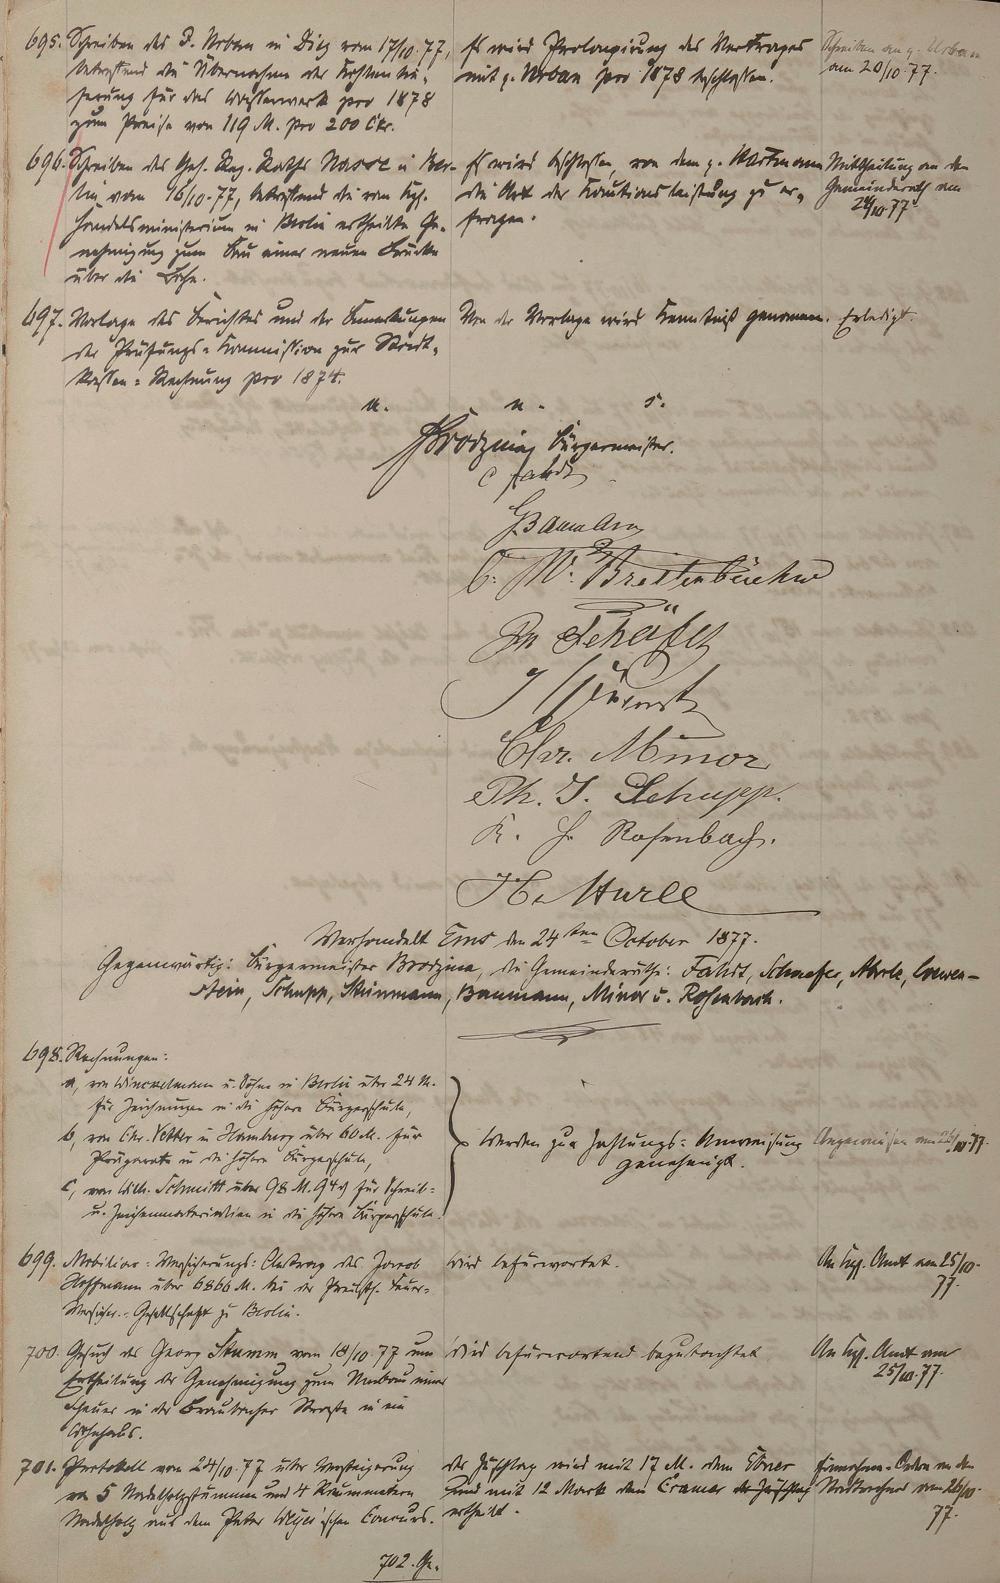 695. Schreiben des P. Urban in Diez vom 17/10.77,
betreffend die Übernahme der Kohlenlie-
ferung für das Wasserwerk pro 1878
zum Preise von 119 M. pro 200 Ctr.
Es wird Prolongirung des Vertrages
mit p. Urban pro 1878 beschlossen.
Schreiben an p. Urban
am 20/10.77.
696. Schreiben des Geh. Reg. Raths in Ber-
lin vom 16/10.77, betreffend die vom Kgl.
Handelsministerium in Berlin ertheilte Ge-
nehmigung zum Bau einer neuen Brücke
über die Lahn.
Es wird beschlossen, von dem p. Hartmann
die Art der Kautionsleistung zu er-
fragen.
Mittheilung an den
Gemeinderath am
697. Vorlage des Berichtes und der Bemerkungen
der Prüfungs-Kommission zur Stadt-
kassen-Rechnung pro 1874.
Von der Vorlage wird Kenntniß genommen.
Erledigt.
u. s.
Bürgermeister.
Baumann
C. W. Breitenbücher
Schäfer
Chr. Minor
Ph. J. Schupp.
K. H. Rosenbach.
Verhandelt Ems den 24ten October 1877.
Gegenwärtig: Bürgermeister Brodzina, die Gemeinderäthe: Fahdt, Schaefer, Loewen-
stein, Schupp, Baumann, Minor u. Rosenbach.
698. Rechnungen:
a, von Winckelmann u. Söhne in Berlin über 24 M.
für Zeichnungen in die höhere Bürgerschule,
b, von Chr. Vetter in Hamburg über 60 M. für
Präparate in die höhere Bürgerschule,
c, von Wilh. Schmitt über 98 M. 94 ₰ für Schreib-
u. Zeichenmaterialien in die höhere Bürgerschule.
Werden zur Zahlungs-Anweisung
genehmigt.
Angewiesen am
699. Mobiliar-Versicherungs-Antrag des Jacob
Hoffmann über 6866 M. bei der Preuß. Feuer-
Versicher.-Gesellschaft zu Berlin.
Wird befürwortet.
An Kgl. Amt am 25/10.
77.
700. Gesuch des Georg Stamm vom 18/10.77 um
Ertheilung der Genehmigung zum Umbau einer
Scheuer in der Braubacher Straße in ein
Wohnhaus.
Wird befürwortend begutachtet
An Kgl. Amt am
25/10.77.
701. Protokoll vom 24/10.77 über Versteigerung
von 5 Nadelholzstämmen und 4 Raummetern
Nadelholz aus dem Peter Concurs.
Der Zuschlag wird mit 17 M. dem Ebner
und mit 12 Mark dem Cramer der Zuschlag
ertheilt.
Einnahme-Order an den
Stadtrechner am 26/10.
77.
702. Ge-